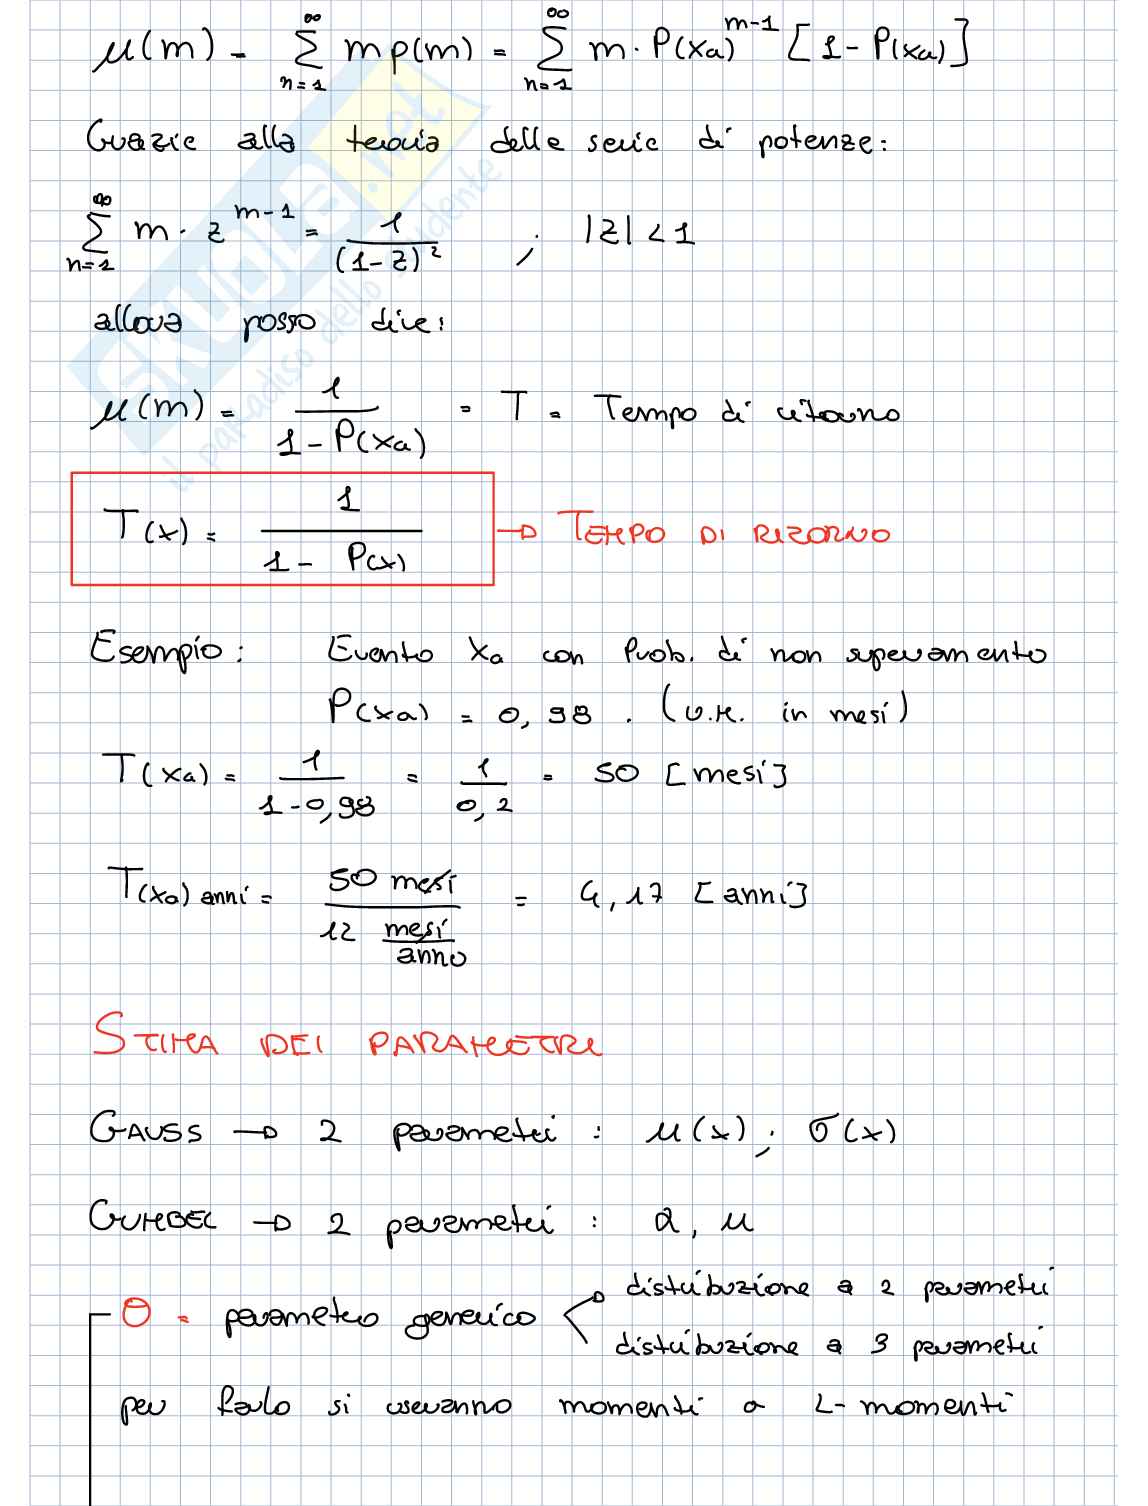 μ(m) = ∞∑n=1 m p(m) = ∞∑n=1 m · P(xa)^m-1 [1 - P(xa)]
Grazie alla teoria delle serie di potenze:
∞∑n=1 m · z^m-1 = 1/(1-z)² ; |z| < 1
allora posso dire:
μ(m) = 1/(1 - P(xa)) = T = Tempo di ritorno
T(x) = 1/(1 - P(x)) → TEMPO DI RITORNO
Esempio: Evento xa con Prob. di non superamento
P(xa) = 0,98. (U.M. in mesi)
T(xa) = 1/(1-0,98) = 1/0,2 = 50 [mesi]
T(xa) anni = 50 mesi/(12 mesi/anno) = 4,17 [anni]
STIMA DEI PARAMETRI
GAUSS → 2 parametri : μ(x) ; σ(x)
GUMBEL → 2 parametri : α, u
distribuzione a 2 parametri
θ = parametro generico
distribuzione a 3 parametri
per farlo si useranno momenti o L-momenti
SKUOLA.net
il paradiso dello studente